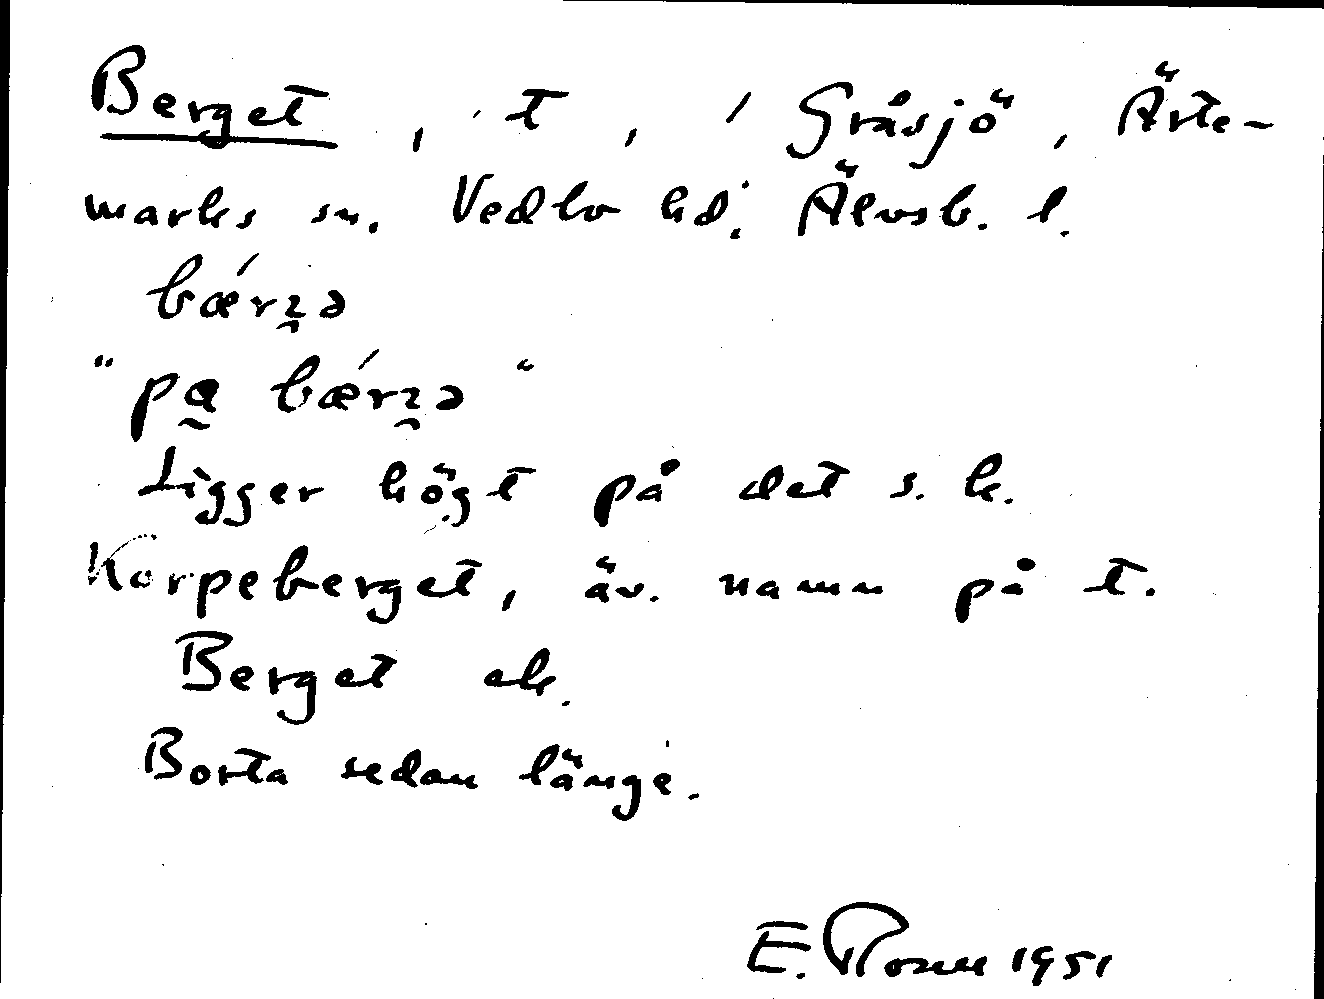 Berget, t, / Gråsjö, Ärte-
marks sn. Vedbo hd. Älvsb. l.
bǽrꝛ̯ə
"pa̰ bǽrꝛ̯ə"
Ligger högt på det s. k.
Korpeberget, äv. namn på t.
Berget ek.
Borta sedan länge.
E. 1951